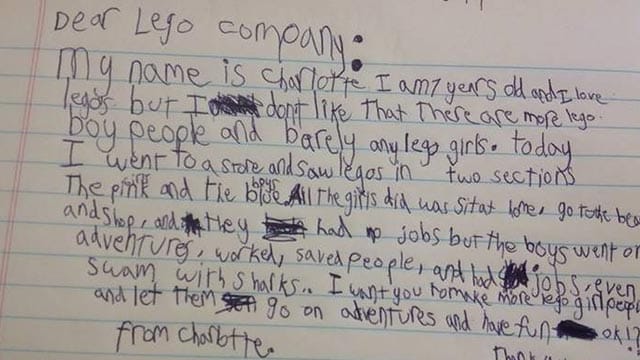 Dear Lego company:
My name is Charlotte. I am 7 years old and I love
legos but I don't like that there are more lego
boy people and barely any lego girls. today
I went to a store and saw legos in two sections
The pink girls and the blue boys. All the girls did was sit at home, go to the beach
and shop, and they had no jobs but the boys went on
adventures, worked, saved people, and had jobs, even
swam with sharks.. I want you to make more lego girl people
and let them go on adventures and have fun ok!?
Thank
from Charlotte.